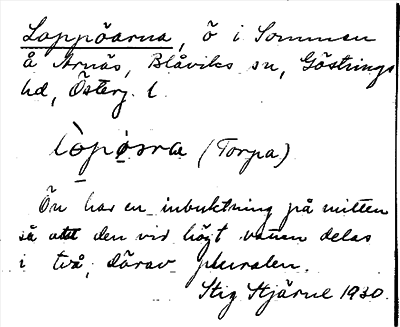 Lappöarna, ö i Sommen
å Arnäs, Blåviks sn, Göstrings
hd, Österg. l.
lòpøɿra (Torpa)
Ön har en inbuktning på mitten
så att den vid högt vatten delas
i två, därav pluralen.
Stig Stjärne 1930.